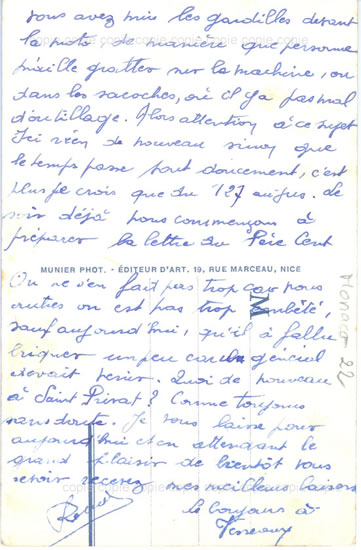 vous avez mis les gardilles devant
la moto de manière que personne
n'aille gratter sur la machine, ou
dans les sacoches, où il y a pas mal
d'outillage. Alors attention à ce sujet
Ici rien de nouveau sinon que
le temps passe tout doucement, c'est
plus je crois que du 127 aujus. Ce
soir déjà nous commençons à
préparer la lettre du Père Cent
MUNIER PHOT. - ÉDITEUR D'ART. 19, RUE MARCEAU, NICE
On ne s'en fait pas trop car nous
on est pas trop embêté,
sauf aujourd'hui, qu'il à fallu
briquer un peu car un général
devait venir. Quoi de nouveau
à Saint Privat? Comme toujours
sans doute. Je vous laisse pour
aujourd'hui et en attendant le
grand plaisir de bientôt vous
revoir recevez mes meilleurs baisers
le toujours à
Monaco 22
M
copie copie copie copie